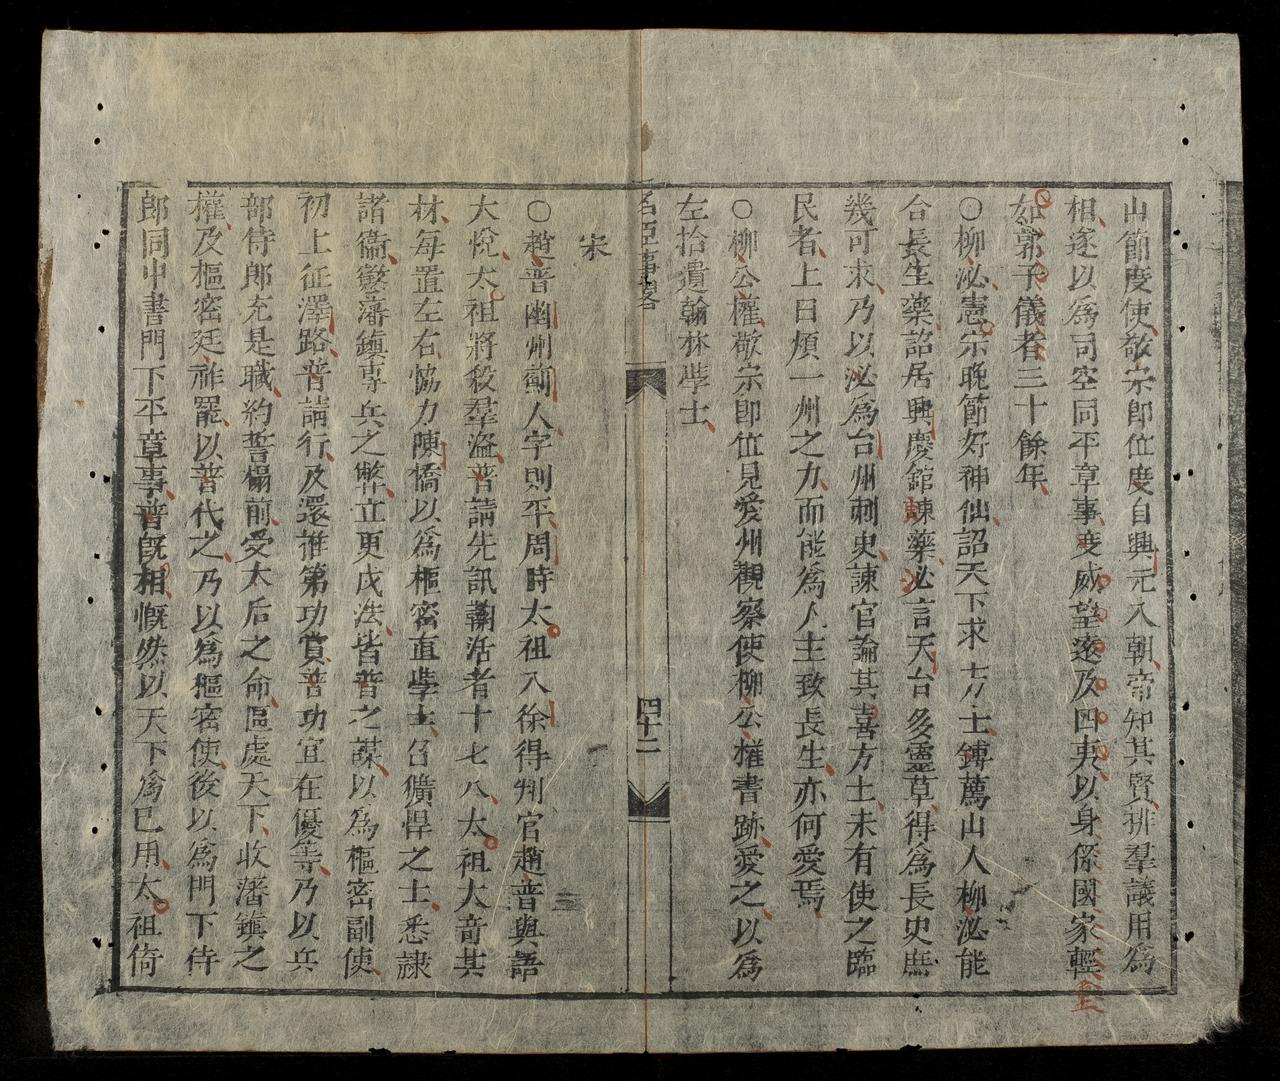 山節度使敬宗即位度自興元入朝帝知其賢排羣議用爲
相遂以爲司空同平章事度威望遠及四夷以身係國家輕
如郭子儀者三十餘年
○柳泌憲宗晚節好神仙詔天下求方士鎛薦山人柳泌能
合長生藥詔居興慶舘諫藥泌言天台多靈草得爲長史庶
幾可求乃以泌爲台州刺史諫官論其喜方士未有使之臨
民者上曰煩一州之力而能爲人主致長生亦何愛焉
○柳公權敬宗即位見愛州觀察使柳公權書跡愛之以爲
左拾遺翰林學士
名臣事畧
四十二
宋
○趙普幽州薊人字則平周時太祖入徐得判官趙普與語
大悅太祖將殺羣盗普請先訊鞫活者十七八太祖大奇其
材每置左右恊力陳橋以爲樞密直學士召獷悍之士悉隷
諸衞懲藩鎮專兵之弊立更戍法皆普之謀以爲樞密副使
初上征澤路普請行及還推第功賞普功宜在優等乃以兵
部侍郎充是職約誓榻前受太后之命區處天下收藩鎮之
權及樞密廷祚罷以普代之乃以爲樞密使後以爲門下侍
郎同中書門下平章事普旣相慨然以天下爲已用太祖倚